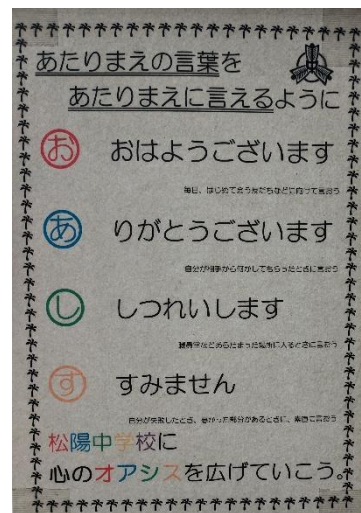 あたりまえの言葉を
あたりまえに言えるように
お おはようございます
毎日、はじめて会う友だちなどに向けて言おう
あ りがとうございます
自分が相手から何かしてもらったときに言おう
し しつれいします
職員室などあらたまった場所に入るときに言おう
す すみません
自分が失敗したとき、悪かった部分があるときに、素直に言おう
松陽中学校に
心のオアシスを広げていこう。